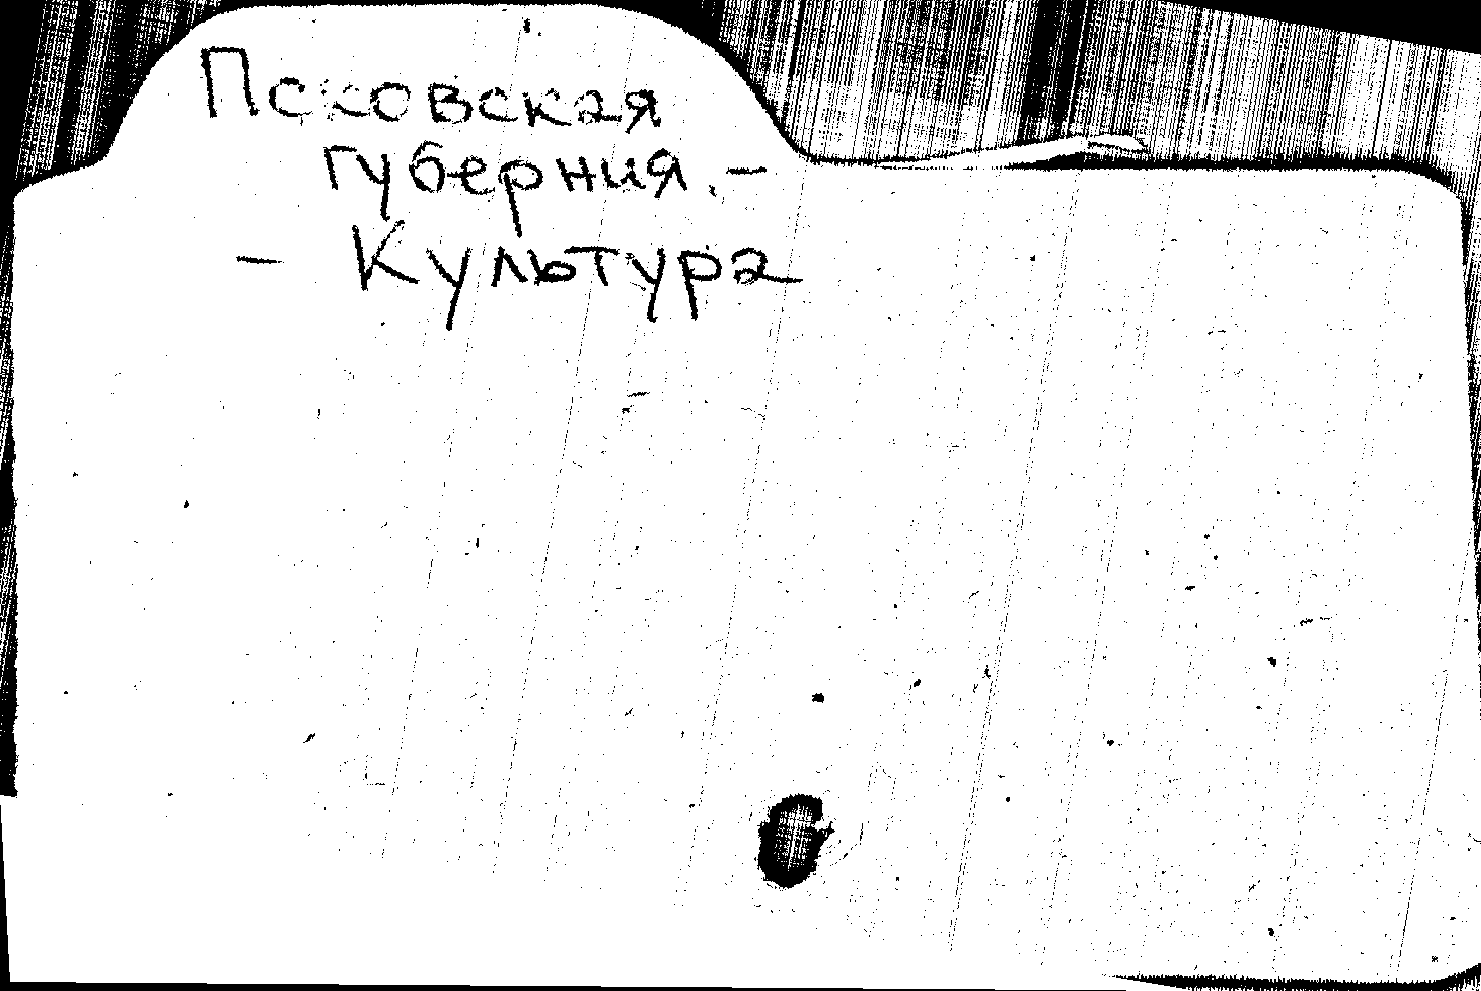 Псковская
губерния. –
– Культура